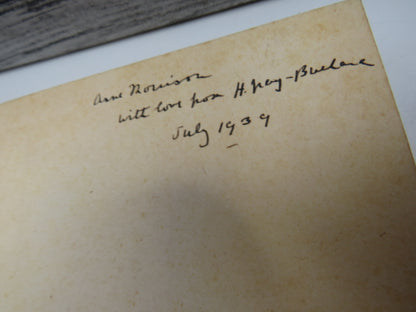 Anne Morrison
with love from H. Guy-Bullard
July 1939